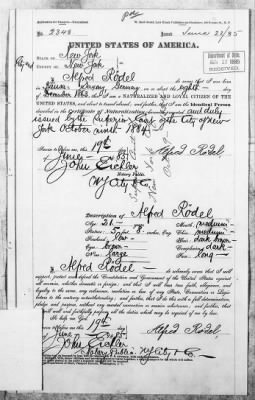 No. 2348 Issued June 22/85
UNITED STATES OF AMERICA.
STATE OF New York
COUNTY OF New York
I, Alfred Rödel do swear that I was born
in Saxony, Germany on the eighth
day of December 1863
UNITED STATES, and about to travel abroad; and further, that I am the identical Person
described in the Certificate of Naturalization and duly
issued by the Superior Court of the City of New
York October ninth 1884
Sworn to before me, this 19th
day of June 1885
Alfred Rödel
John Eichler
Notary Public.
N.Y. City & Co.
Description of Alfred Rödel
Age, 21
Mouth, medium
Stature, 5 feet 8 inches, Eng.
Chin, medium
Forehead,
Hair, dark brown
Eyes, brown
Complexion, dark
Nose, large
Face, long
I, Alfred Rödel do solemnly swear that I will
support, protect and defend the Constitution and Government of the United States against
all enemies, whether domestic or foreign; and that I will bear true faith, allegiance
and loyalty to the same, any ordinance, resolution or law of any State, Convention or Legislature
to the contrary notwithstanding; and further, that I do this with a full determination,
pledge and purpose, without any mental reservation or evasion whatsoever; and further, that
I will well and faithfully perform all the duties which may be required of me by law.
So help me God.
Sworn to before me, this 19th
day of June 1885
Alfred Rödel
John Eichler
Notary Public. N.Y. City & Co.